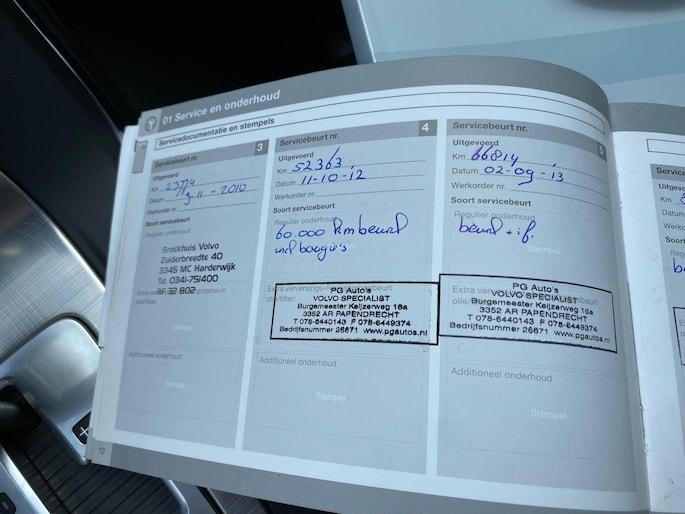 01 Service en onderhoud
Servicedocumentatie en stempels
Servicebeurt nr. 3
Uitgevoerd
Km
Datum 9-11-2010
Werkorder nr.
Soort servicebeurt
Regulier onderhoud
Broekhuis Volvo
Zuiderbreedte 40
3345 MC Harderwijk
Tel. 0341-751400
BF 32 802
Stempel
Additioneel onderhoud
Stempel
10
Servicebeurt nr. 4
Uitgevoerd
Km 52363
Datum 11-10-12
Werkorder nr.
Soort servicebeurt
Regulier onderhoud
60.000 km beurt
incl bougie's
PG Auto's
VOLVO SPECIALIST
Burgemeester Keijzerweg 16a
3352 AR PAPENDRECHT
T 078-6440143 F 078-6449374
Bedrijfsnummer 26671 www.pgautos.nl
Additioneel onderhoud
Stempel
Servicebeurt nr. 5
Uitgevoerd
Km 66814
Datum 02-09-13
Werkorder nr.
Soort servicebeurt
Regulier onderhoud
beurt + if.
Stempel
PG Auto's
VOLVO SPECIALIST
Burgemeester Keijzerweg 16a
3352 AR PAPENDRECHT
T 078-6440143 F 078-6449374
Bedrijfsnummer 26671 www.pgautos.nl
Additioneel onderhoud
Stempel